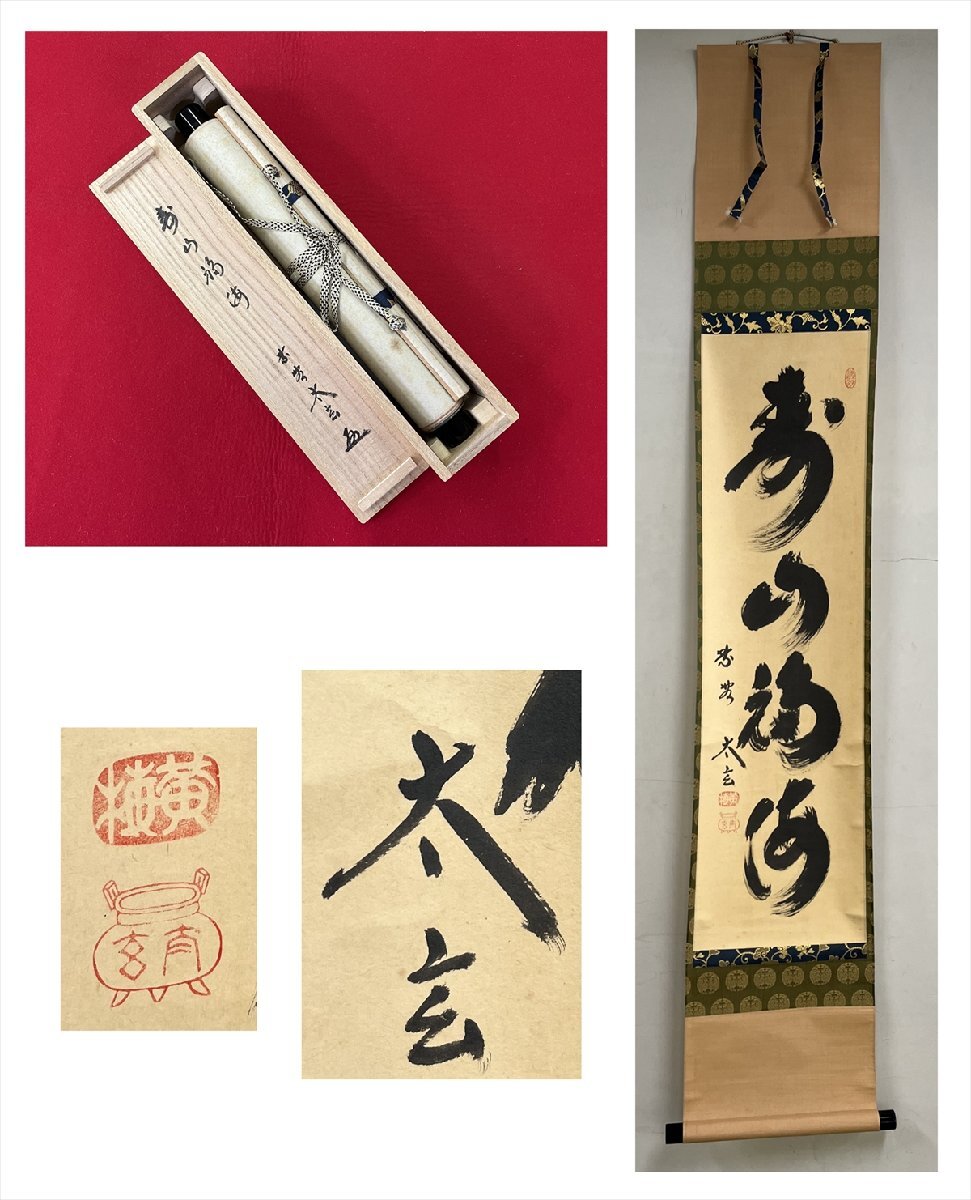 寿山福海
紫野 太玄
寿山福海
紫野 太玄
黄梅
太玄
太玄